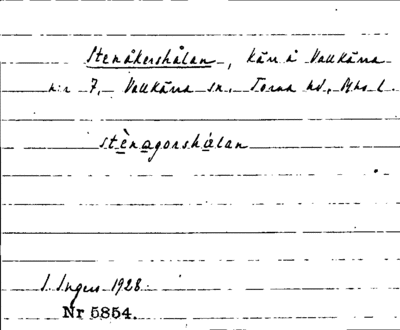 Stenåkershålan, kärr å Vallkärra
n:r 7, Vallkärra sn, Torna hd, Mhs l.
stènagorshålan
I. Ingers 1928.
Nr 5854.